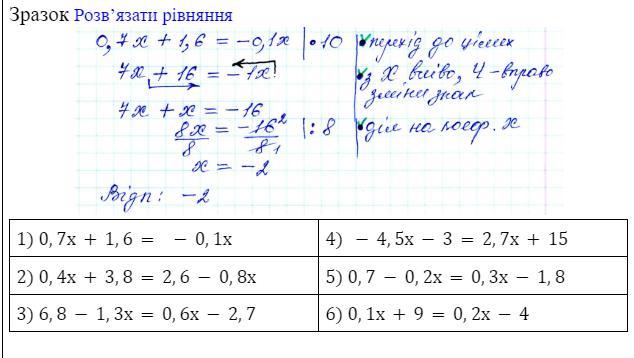 Зразок Розв’язати рівняння
0,7x + 1,6 = -0,1x | • 10 перехід до цілих
7x + 16 = -1x з X вліво, Ч-вправо
зміни знак
7x + x = -16
8x/8 = -16²/8₁ | : 8 діл на коеф. x
x = -2
Відп: -2
1) 0,7x + 1,6 = − 0,1x
4) − 4,5x − 3 = 2,7x + 15
2) 0,4x + 3,8 = 2,6 − 0,8x
5) 0,7 − 0,2x = 0,3x − 1,8
3) 6,8 − 1,3x = 0,6x − 2,7
6) 0,1x + 9 = 0,2x − 4